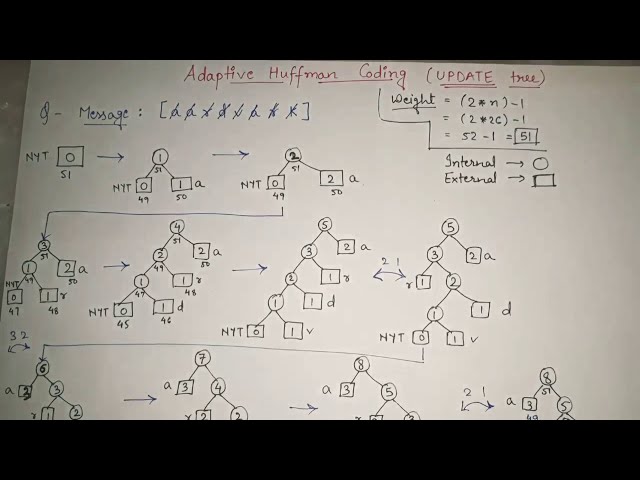 Adaptive Huffman Coding (UPDATE tree)
Q - Message : [a a r d v a r k]
Weight = (2*n)-1
= (2*26)-1
= 52-1 = 51
Internal → ○
External → □
NYT 0 → 1 → 2
51 51 51
NYT 0 1 a NYT 0 2 a
49 50 49 50
3 → 4 → 5 5
51 51
1 2 a 2 2 a 3 2 a 2 1 3 2 a
49 50 49 50
NYT 0 1 r 1 1 r 2 1 r r 1 2
47 48 47 48
NYT 0 1 d 1 1 d 1 1 d
45 46
NYT 0 1 v NYT 0 1 v
3 2
6 → 7 → 8 2 1 8
51
a 3 3 a 3 4 a 3 5 a 3 5
49
r 1 2 r 2 2